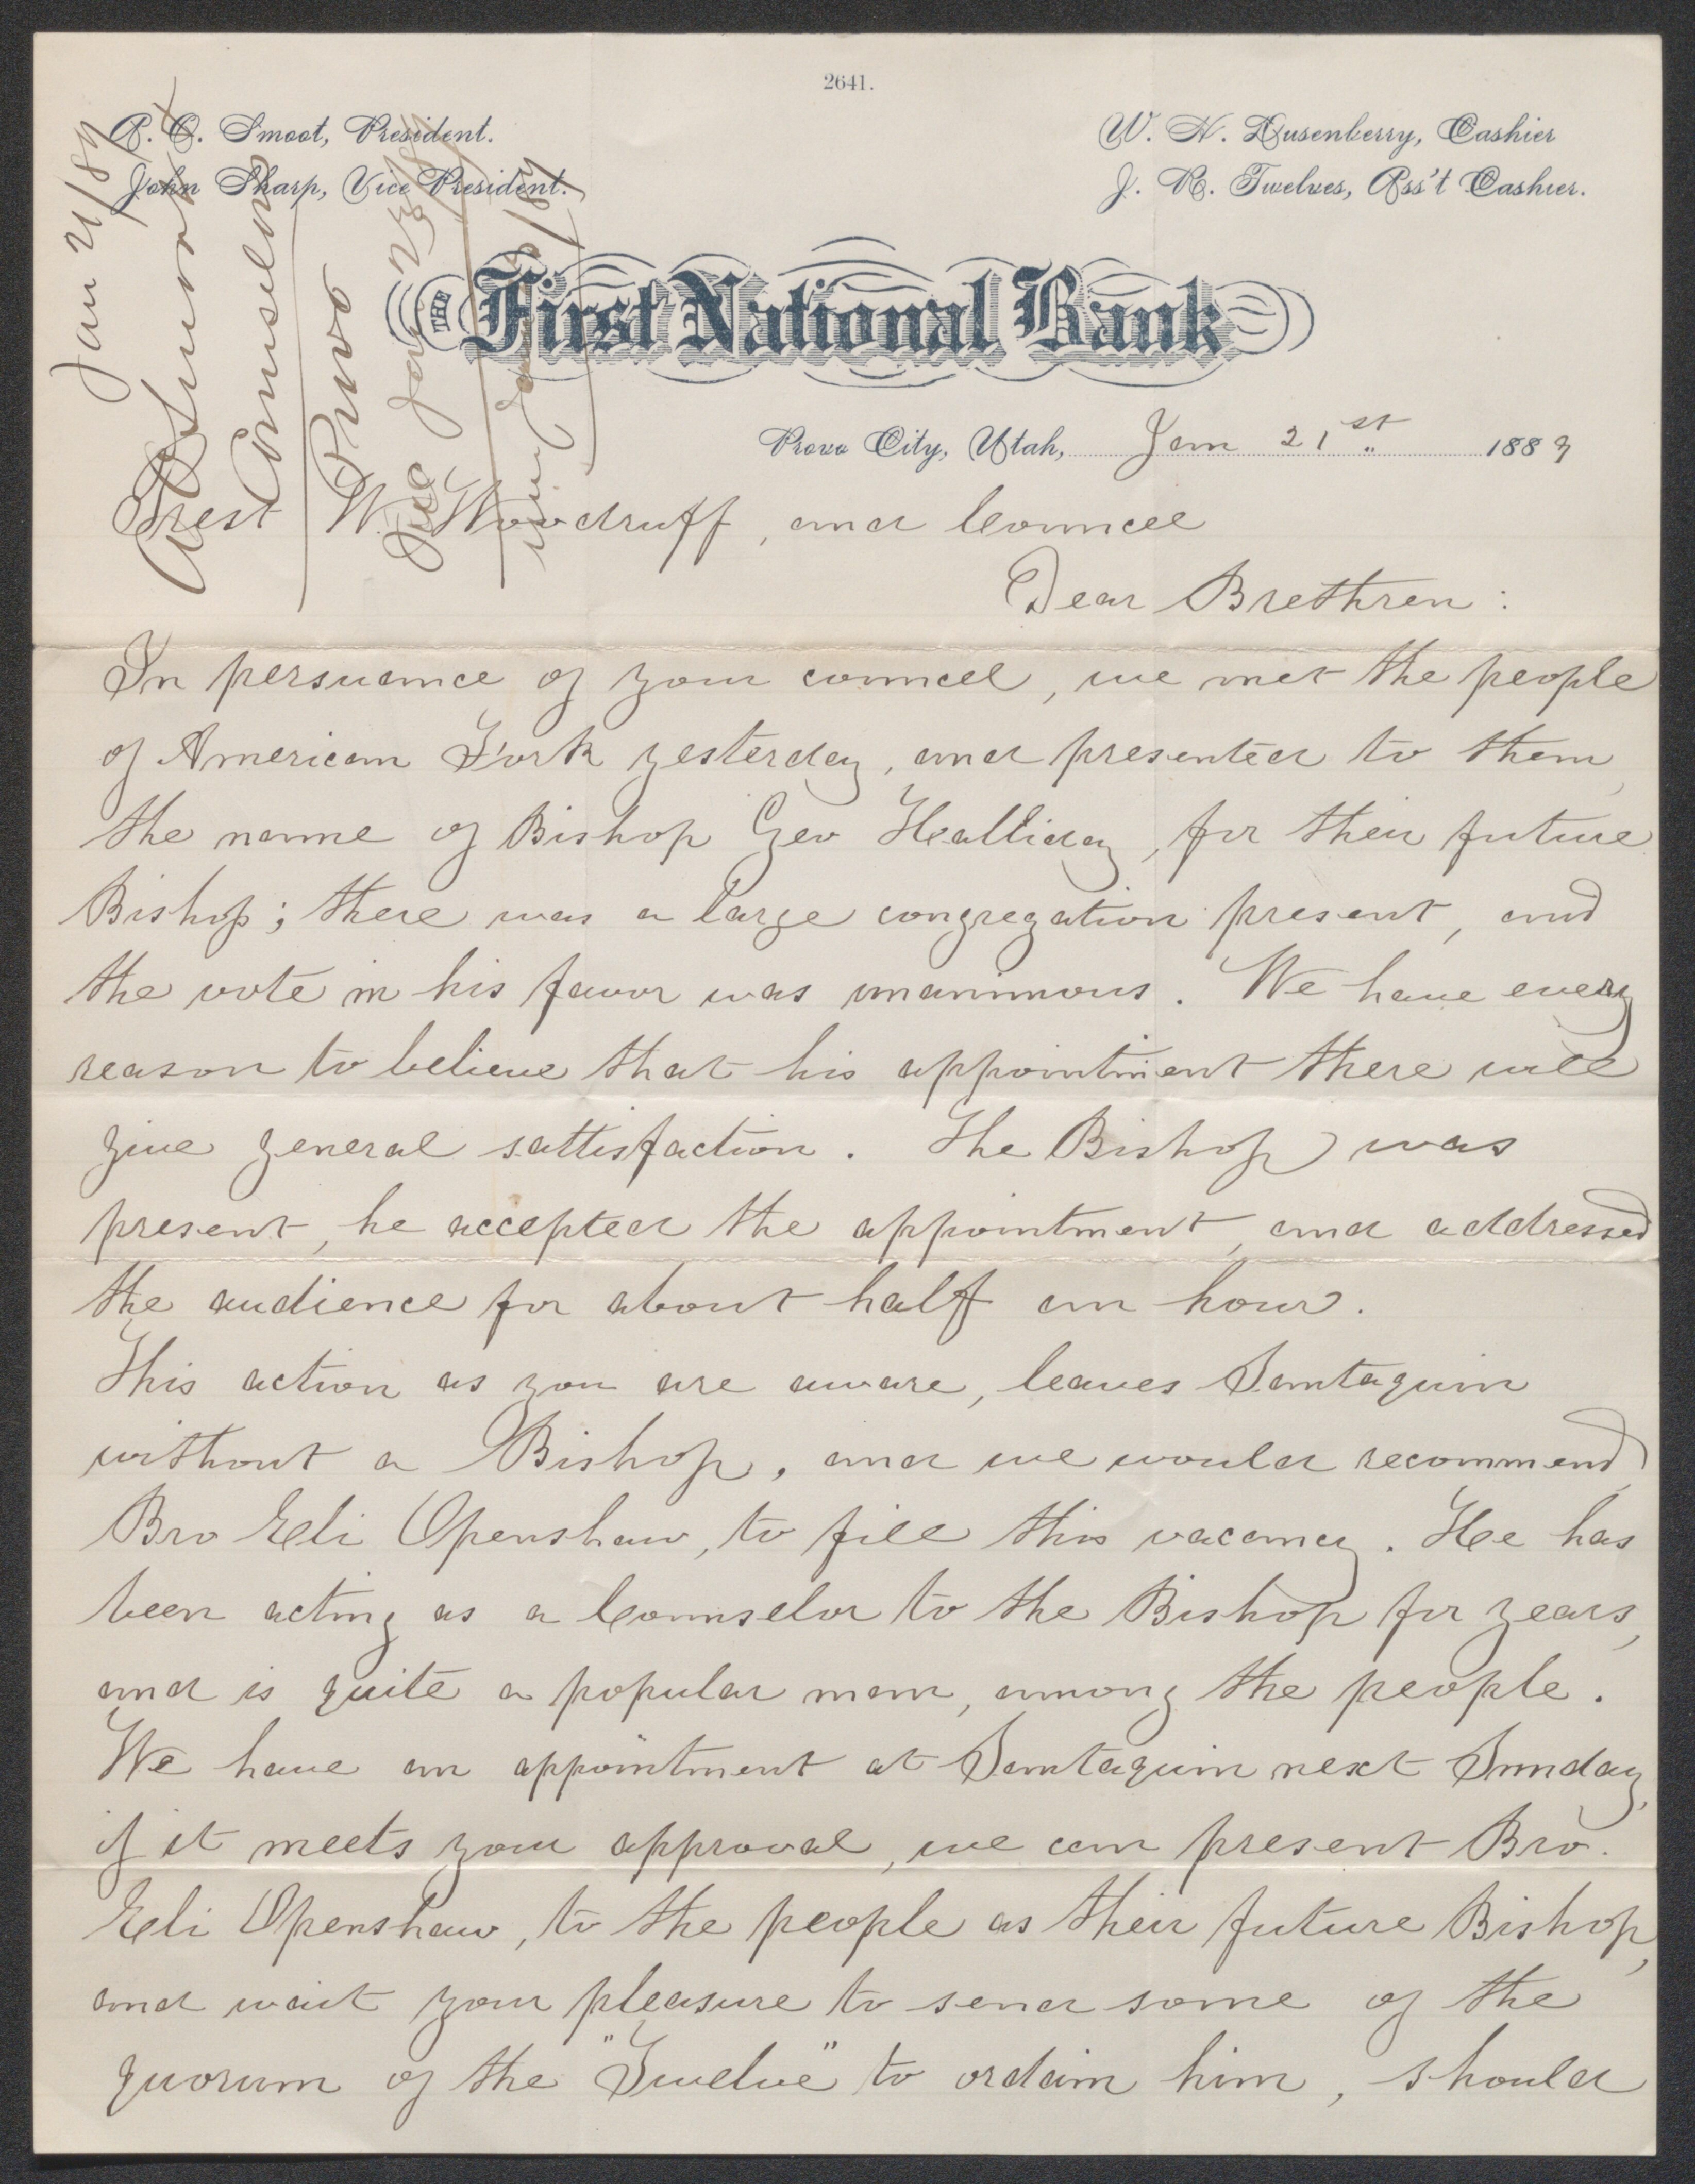 2641.
A. O. Smoot, President.
John Sharp, Vice President.
W. H. Dusenberry, Cashier
J. R. Twelves, Ass't Cashier.
THE First National Bank
Provo City, Utah, Jan 21st 1889
Jan 21/89
A O Smoot &
Counselors
Provo
Jan 23/89
Prest W. Woodruff, and Councel
Dear Brethren:
In persuance of your councel, we met the people
of American Fork yesterday, and presented to them,
the name of Bishop Geo Halliday, for their future
Bishop; there was a large congregation present, and
the vote in his favor was unanimous. We have every
reason to believe that his appointment there will
give general sattisfaction. The Bishop was
present, he accepted the appointment, and adddressed
the audience for about half an hour.
This action as you are aware, leaves Santaquin
without a Bishop, and we would recommend,
Bro Eli Openshaw, to fill this vacancy. He has
been acting as a Counselor to the Bishop for years,
and is quite a popular man, among the people.
We have an appointment at Santaquin next Sunday,
if it meets your approval, we can present Bro.
Eli Openshaw, to the people as their future Bishop,
and wait your pleasure to send some of the
quorum of the "Twelve" to ordain him, should